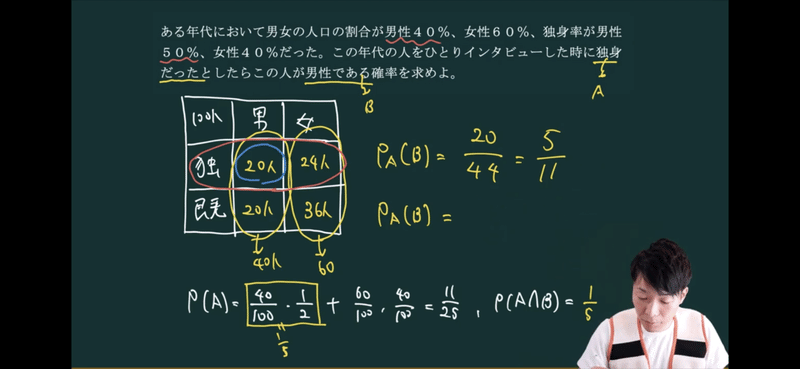 ある年代において男女の人口の割合が男性40%、女性60%、独身率が男性
50%、女性40%だった。この年代の人をひとりインタビューした時に独身
だったとしたらこの人が男性である確率を求めよ。
B
A
100人 男 女
独 20人 24人
既 20人 36人
40人 60
P_A(B) = 20/44 = 5/11
P_A(B) =
P(A) = 40/100 · 1/2 + 60/100 · 40/100 = 11/25 , P(A∩B) = 1/5
1/5